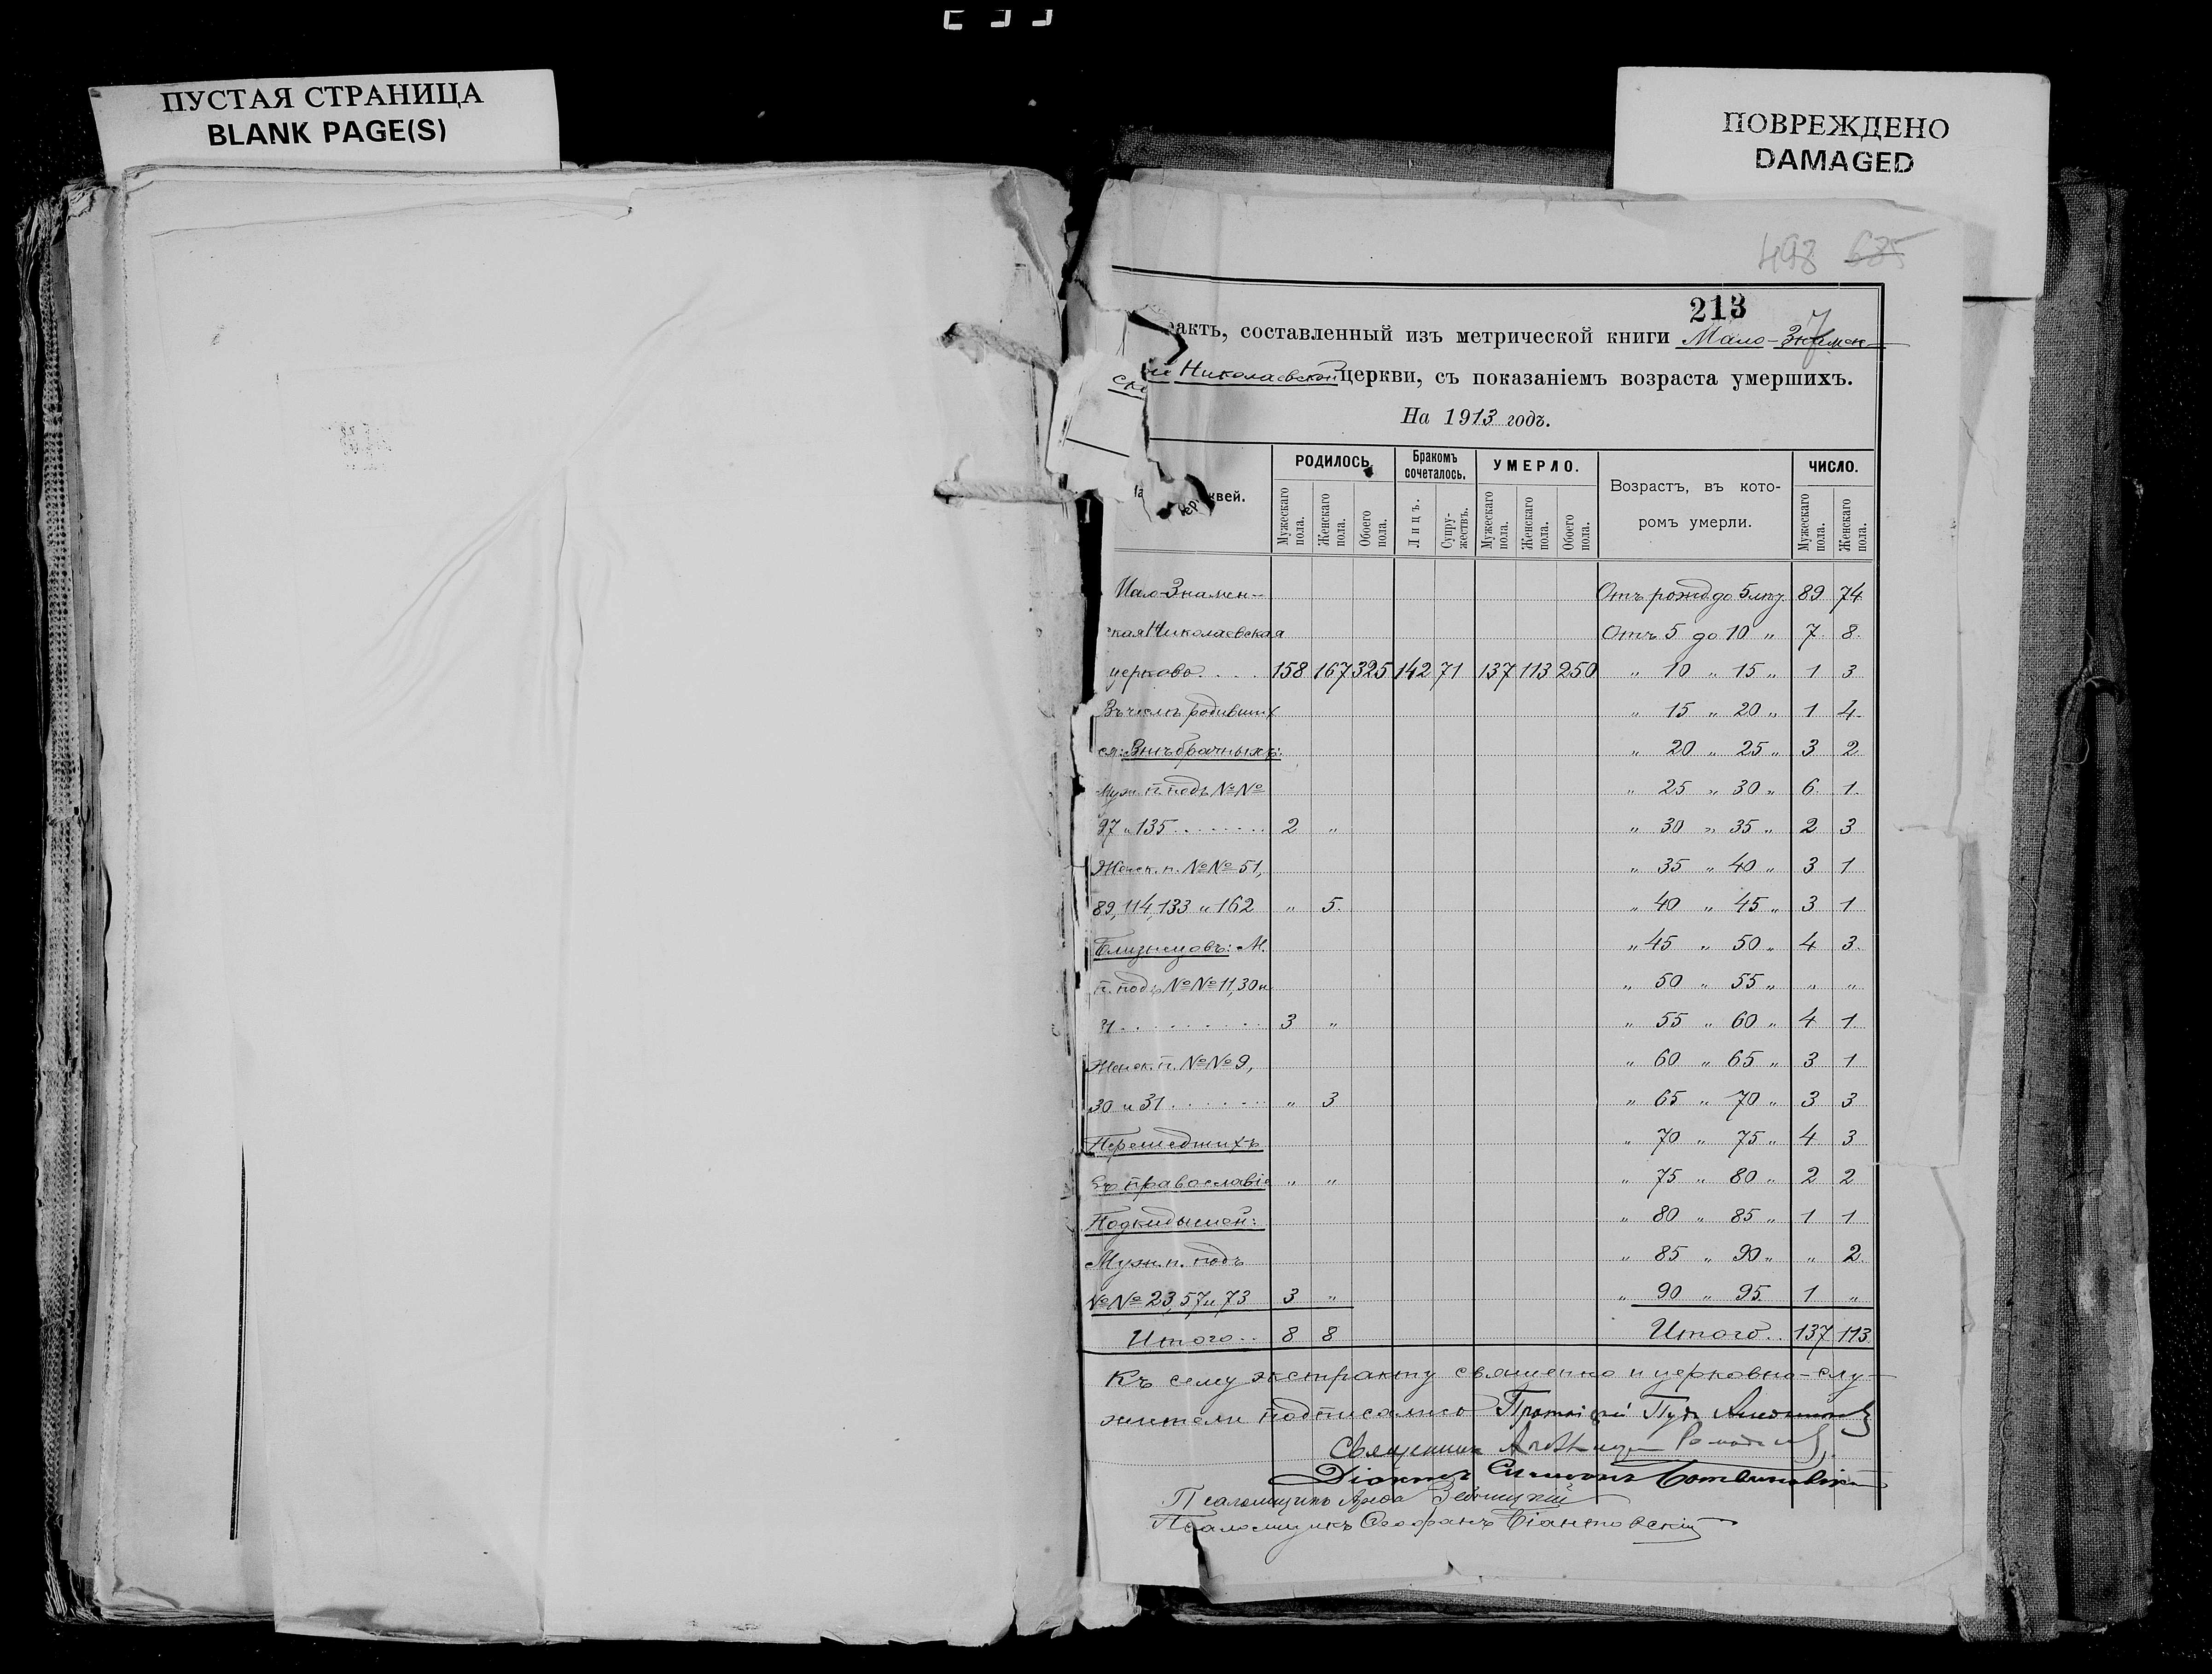 ПУСТАЯ СТРАНИЦА
BLANK PAGE(S)
ПОВРЕЖДЕНО
DAMAGED
493 635
213
рактъ, составленный изъ метрической книги Мало-Знамен-
ской Николаевской церкви, съ показаніемъ возраста умершихъ.
На 1913 годъ.
РОДИЛОСЬ. Бракомъ сочеталось. УМЕРЛО. Возрастъ, въ кото-ромъ умерли. ЧИСЛО.
квей. Мужескаго пола. Женскаго пола. Обоего пола. Лицъ. Супру-жествъ. Мужескаго пола. Женскаго пола. Обоего пола. Мужескаго пола. Женскаго пола.
Мало-Знамен- Отъ рожд до 5 лѣт 89 74
ская Николаевская Отъ 5 до 10 „ 7 8
церковь.... 158 167 325 142 71 137 113 250 „ 10 „ 15 „ 1 3
Въ числѣ родивших „ 15 „ 20 „ 1 4
ся: Внѣбрачныхъ: „ 20 „ 25 „ 3 2
Муж. п. подъ №№ „ 25 „ 30 „ 6 1
97 и 135....... 2 „ „ 30 „ 35 „ 2 3
Женск. п. №№ 51, „ 35 „ 40 „ 3 1
89, 114, 133 и 162 „ 5 „ 40 „ 45 „ 3 1
Близнецовъ: М. „ 45 „ 50 „ 4 3
п. подъ №№ 11, 30 и „ 50 „ 55 „ „ „
31......... 3 „ „ 55 „ 60 „ 4 1
Женск. п. №№ 9, „ 60 „ 65 „ 3 1
30 и 31...... „ 3 „ 65 „ 70 „ 3 3
Перешедшихъ „ 70 „ 75 „ 4 3
въ православіе „ „ „ 75 „ 80 „ 2 2
Подкидышей: „ 80 „ 85 „ 1 1
Муж. п. подъ „ 85 „ 90 „ „ 2
№№ 23, 57 и 73 3 „ „ 90 „ 95 1 „
Итого.. 8 8 Итого.. 137 113
Къ сему экстракту священно и церковно-слу-
жители подписались Протоіерей
Священникъ Александръ
Діаконъ Симеонъ
Псаломщикъ
Псаломщикъ Ѳеофанъ